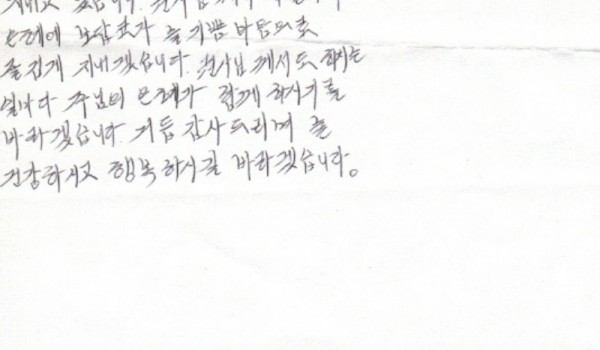 은혜에 보답코자 늘 기쁜 마음으로
즐겁게 지내겠습니다. 천사님께서도 하시는
일마다 주님의 은혜가 함께 하시기를
바라겠습니다. 거듭 감사드리며 늘
건강하시고 행복하시길 바라겠습니다.